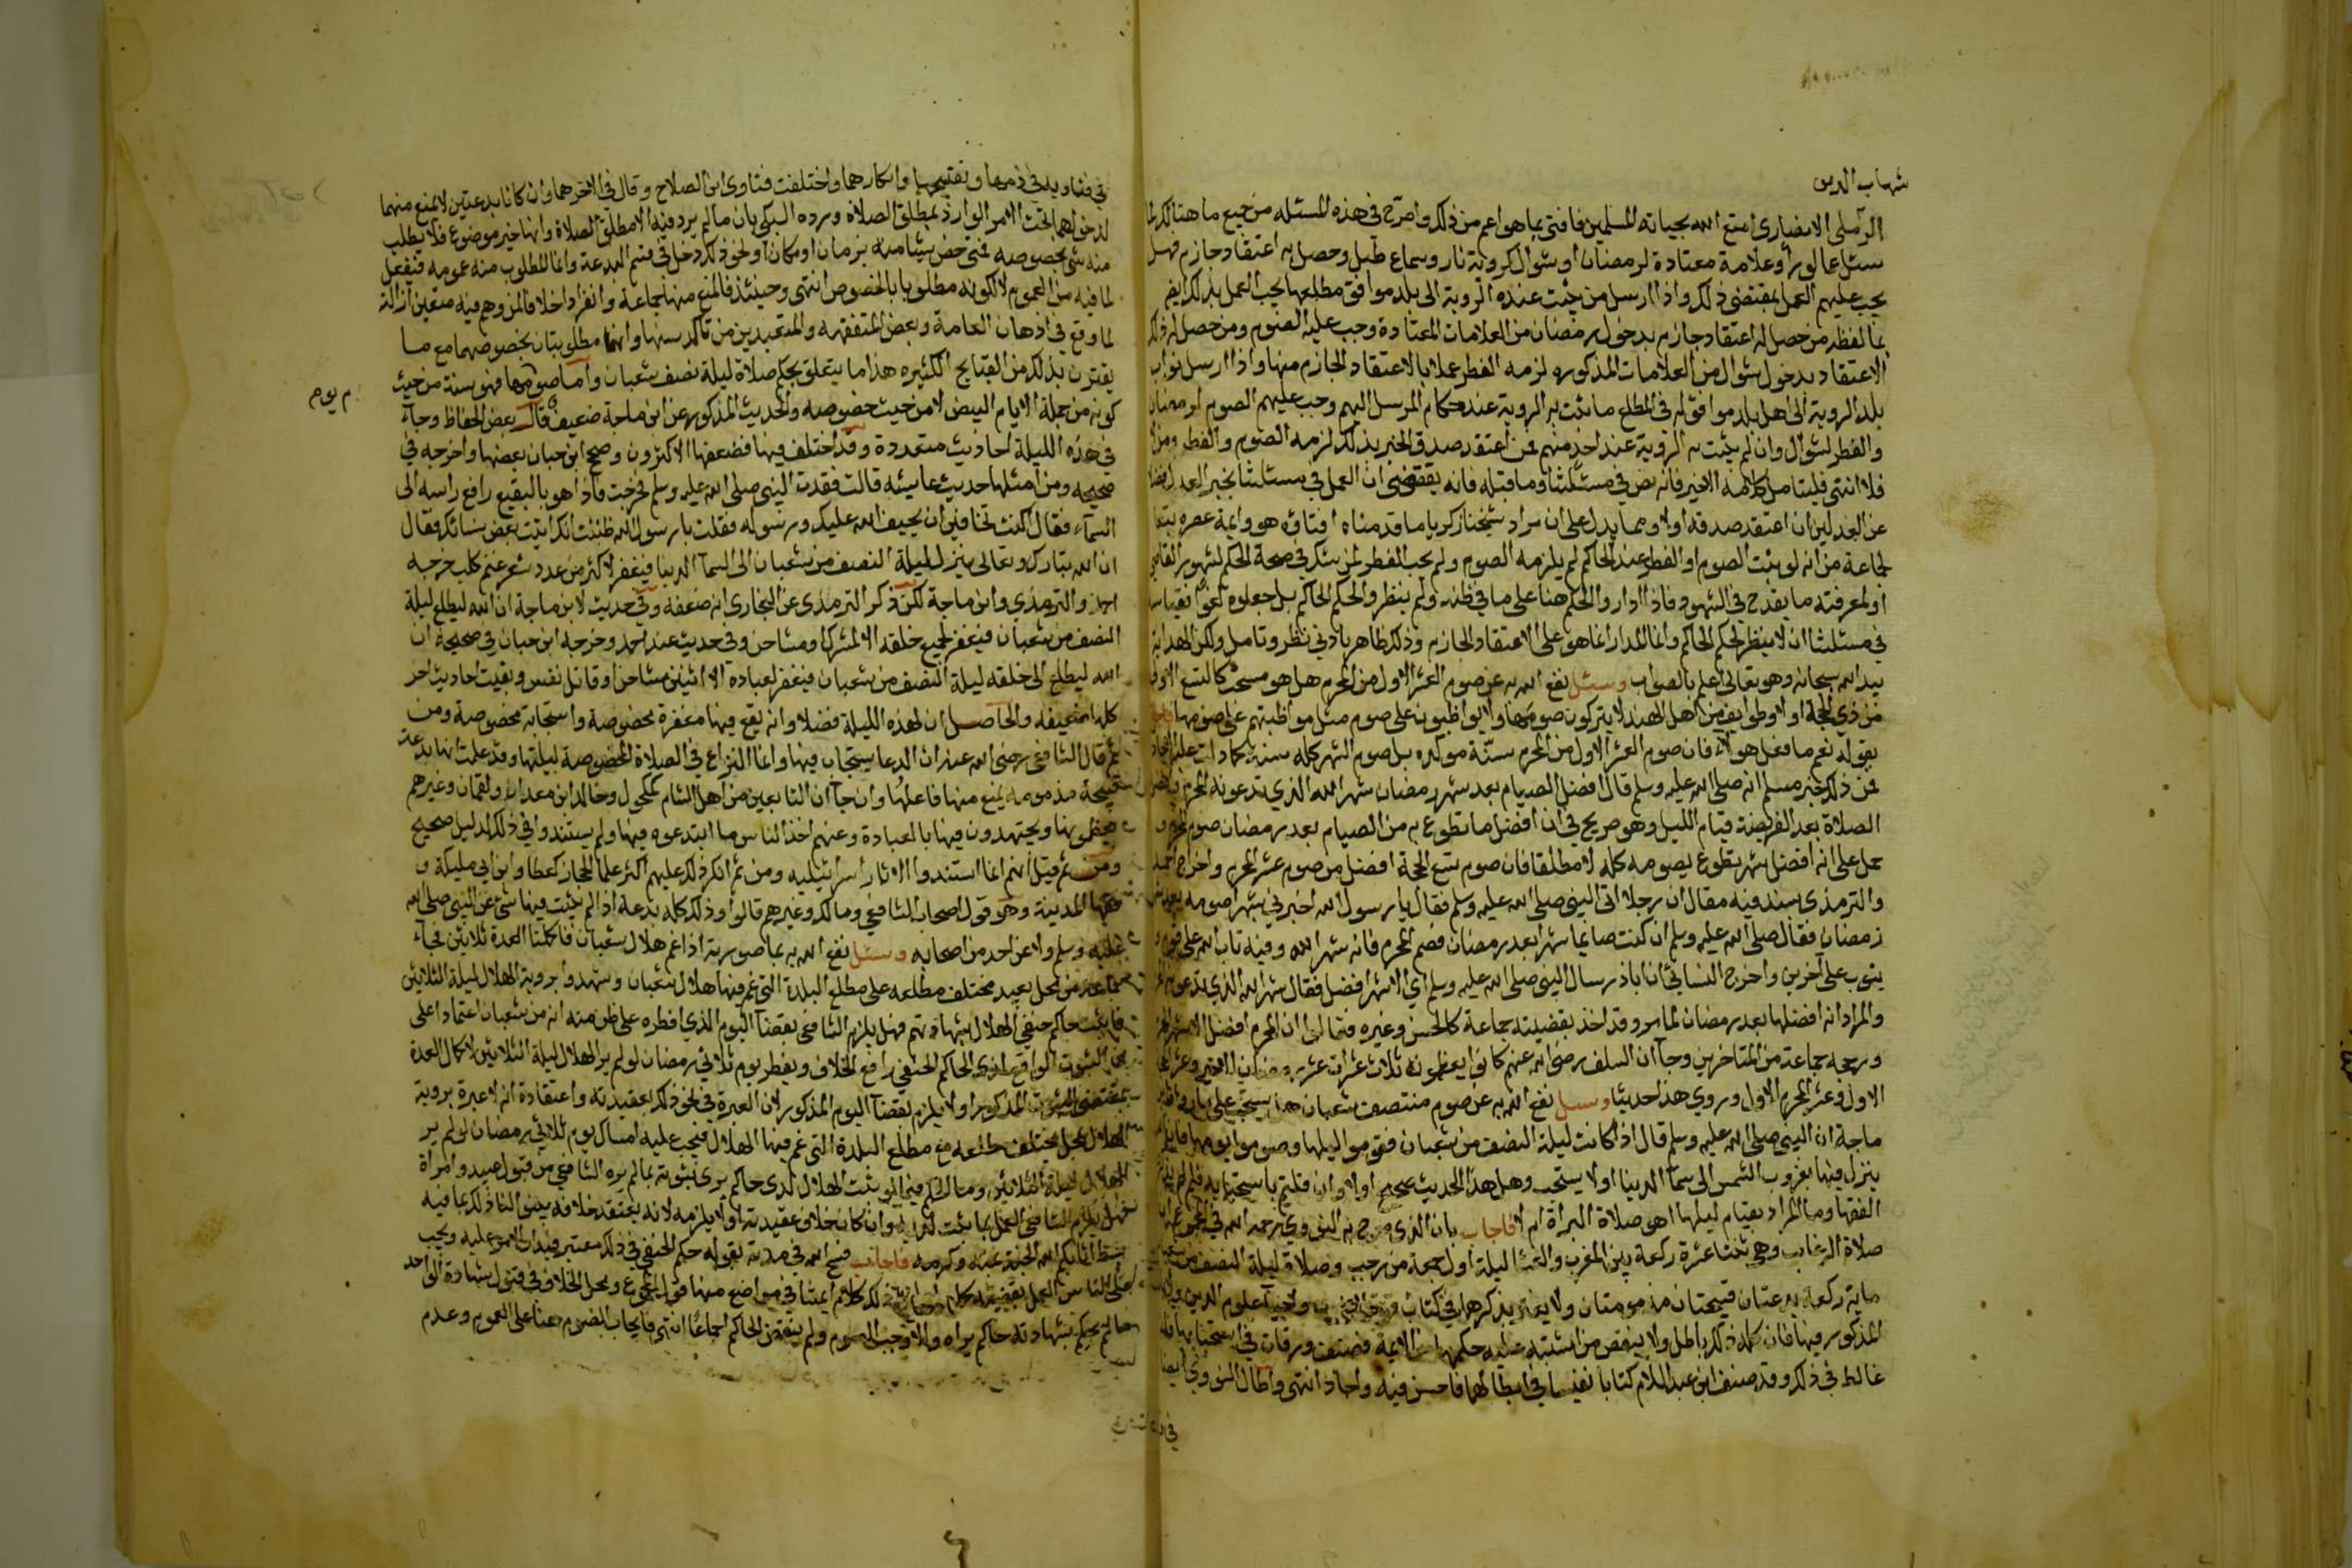 شهاب الدين
الرملى الانصارى امتع الله بحياته المسلمين فافتى بما هو اعم من ذلك واصرح فى هذه المسئلة من جميع ما هنالك
سئل عما لو رأوا علامة معتادة لرمضان او شوال كروية نار وسماع طبل وحصل به اعتقاد جازم فهل
يجب عليهم العمل بمقتضى ذلك واذا ارسل من يثبت عنده الروية الى بلد موافق مطلعها يجب العمل بذلك
بما لفظه من حصل له اعتقاد جازم بدخول رمضان من العلامات المعتادة وجب عليه الصوم ومن حصل له ذلك
الاعتقاد بدخول شوال من العلامات المذكوره لزمه الفطر عملا بالاعتقاد الجازم منها واذا ارسل نواب
بلد الروية الى اهل بلد موافق له فى المطلع ما يثبت به الروية عند حكام المرسل اليهم وجب عليهم الصوم لرمضان
والفطر لشوال وان لم يثبت به الروية عند احد منهم فمن اعتقد صدق الخبر بذلك لزمه الصوم والفطر ومن لا
فلا انتهى فليتامل كلامه الاخير فانه نص فى مسئلتنا وما قبله فانه يقتضى ان العمل فى مسئلتنا بخبر العدل
عن العدلين ان اعتقد صدقه اولا ومما يدل على ان مراد شيخنا زكريا ما قدمناه افتاؤه هو وايمة عصره
لجماعة من انه لو يثبت الصوم او الفطر عند الحاكم لم يلزمه الصوم ولم يجب الفطر لمن يشك فى صحة الحكم لتهور القاضى
او لمعرفته ما يقدح فى الشهود فاذا اداروا الحكم هنا على ما فى ظنه ولم ينظروا لحكم الحاكم بل جعلوه لغوا
فى مسئلتنا ان لا ينظر لحكم الحاكم وانما المدار انما هو على الاعتقاد الجازم وذلك ظاهر بادنى نظر وتامل ولكن الهداية
بيد الله سبحانه وهو تعالى اعلم بالصواب وسئل نفع الله به عن صوم العشر الاول من المحرم هل هو مستحب كالتسع الاول
من ذى الحجة او لا وطوايف من اهل الهند لا يتركون صومها ولا يواظبون على صوم مثل مواظبتهم على صومها
بقوله نعم ما فعل هولاء فان صوم العشر الاول من المحرم سنّة موكده بل صوم الشهر كله سنة كما دلت عليه
فمن ذلك خبر مسلم انه صلى الله عليه وسلم قال افضل الصيام بعد شهر رمضان شهر الله الذى تدعونه المحرم
الصلاة بعد الفريضة قيام الليل وهو صريح فى ان افضل ما تطوع به من الصيام بعد رمضان صوم المحرم
حمل على انه افضل شهر يتطوع بصومه كله لا مطلقا فان صوم تسع الحجة افضل من صوم عشر المحرم واخرج احمد
والترمذى بسند فيه مقال ان رجلا اتى النبى صلى الله عليه وسلم فقال يا رسول الله اخبرنى بشهر اصومه بعد
رمضان فقال صلى الله عليه وسلم ان كنت صايما شهرا بعد رمضان فصم المحرم فانه شهر الله وفيه تاب الله على قوم
يتوب على آخرين واخرج النسائى ان اباذر سال النبى صلى الله عليه وسلم اى الاشهر افضل فقال شهر الله الذى تدعونه
والمراد انه افضلها بعد رمضان لما مر وقد اخذ بقضيته جماعة كالحسن وغيره فقالوا ان المحرم افضل الاشهر
ورجحه جماعة من المتاخرين وجآ ان السلف رضى الله عنهم كانوا يعظمون ثلاث عشرات عشر رمضان الاخير وعشر
الاول وعشر المحرم الاول وروى هذا حديثا وسئل نفع الله به عن صوم منتصف شعبان هل يستحب على ما رواه ابن
ماجة ان النبى صلى الله عليه وسلم قال اذا كانت ليلة النصف من شعبان فقوموا ليلها وصوموا يومها
ينزل فيها بغروب الشمس الى سمآ الدنيا او لا يستحب وهل هذا الحديث صحيح او لا وان قلتم باستحبابه فلم
الفقها وما المراد بقيام ليلها اهو صلاة البراة ام لا فاجاب بان الذى صرح به النووى رحمه الله فى المجموع
صلاة الرغايب وهى ثنتا عشرة ركعة بين المغرب والعشا ليلة اول جمعة من رجب وصلاة ليلة النصف من شعبان
ماية ركعة بدعتان قبيحتان مذمومتان ولا يغتر بذكرهما فى كتاب قوت القلوب واحيآ علوم الدين
المذكور فيها فان كله ذلك باطل ولا ببعض من اشتبه عليه حكمهما من الايمة فصنف ورقات فى استحبابها
غالط فى ذلك وقد صنف ابن عبد السلام كتابا نفيسا فى ابطالهما فاحسن فيه واجاد انتهى واطال النووى ايضا
فى فتاويه فى ذمهما وتقبيحهما وانكارهما واختلفت فتاوى ابن الصلاح وقال فى الاخر هما وان كانا بدعتين لا يمنع منهما
لدخولهما تحت الامر الوارد بمطلق الصلاة ورده السبكى بان ما لم يرد فيه الا مطلق الصلاة وانها خير موضوع فلا يطلب
منه شى بخصوصه فمتى خص شيئا منه بزمان او مكان او نحو ذلك دخل فى قسم البدعة وانما المطلوب منه عمومه فيفعل
لما فيه من العموم لا لكونه مطلوبا بالخصوص انتهى وحينئذ فالمنع منهما جماعة وانفرادا خلافا لمن وهم فيه متعين ازالة
لما وقع فى اذهان العامة وبعض المتفقهه والمتعبدين من تاكد سنها وانهما مطلوبتان بخصوصهما مع ما
يقترن بذلك من القبايح الكثيره هذا ما يتعلق بحكم صلاة ليلة نصف شعبان واما صومها فهو سنة من حيث
م يوم
كونه من جملة الايام البيض لا من حيث خصوصه والحديث المذكور عن ابن ماجة ضعيف قال بعض الحفاظ وجآء
فى هذه الليلة احاديث متعددة وقد اختلف فيها فضعفها الاكثرون وصحح ابن حبان بعضها واخرجه فى
صحيحه ومن امثلها حديث عايشه قالت فقدت النبى صلى الله عليه وسلم فخرجت فاذا هو بالبقيع رافع راسه الى
السمآء فقال اكنت تخافين ان يحيف الله عليك ورسوله فقلت يا رسول الله ظننت انك اتيت بعض نسائك فقال
ان الله تبارك وتعالى ينزل ليلة النصف من شعبان الى السمآ الدنيا فيغفر لاكثر من عدد شعر غنم كلب خرجه
احمد والترمذى وابن ماجة لكن ذكر الترمذى عن البخارى انه ضعفه وفى حديث لابن ماجة ان الله ليطلع ليلة
النصف من شعبان فيغفر لجميع خلقه الا لمشرك او مشاحن وفى حديث عند احمد وخرجه ابن حبان فى صحيحه ان
الله ليطلع الى خلقه ليلة النصف من شعبان فيغفر لعباده الا اثنين مشاحن او قاتل نفس وبقيت احاديث اخر
كلها ضعيفه والحاصل ان لهذه الليلة فضلا وانه يقع فيها مغفرة مخصوصة واستجابة مخصوصة ومن
ثم قال الشافعى رضى الله عنه ان الدعا يستجاب فيها وانما النزاع فى الصلاة المخصوصة ليلتها وقد علمت انها بدعة
قبيحة مذمومة يمنع منها فاعلها وان جآ ان التابعين من اهل الشام كمكحول وخالد ابن معدان ولقمان وغيرهم
يعظمونها ويجتهدون فيها بالعبادة وعنهم اخذ الناس ما ابتدعوه فيها ولم يستندوا فى ذلك لدليل صحيح
ومن ثم قيل انهم انما استندوا لاثار اسرائيليه ومن ثم انكر ذلك عليهم اكثر علما الحجاز كعطا وابن ابى مليكة و
فقها المدينة وهو قول اصحاب الشافعى ومالك وغيرهم قالوا وذلك كله بدعة اذ لم يثبت فيها شئ عن النبى صلى الله
عليه وسلم ولا عن احد من اصحابه وسئل نفع الله به بما صورته اذا غم هلال شعبان فاكملنا العدة ثلاثين فجآء
جماعة من محل بعيد مختلف مطلعه على مطلع البلدة التى غم فيها هلال شعبان وشهدوا بروية الهلال ليلة الثلاثين
فاثبت حاكم حنفى الهلال بشهادتهم فهل يلزم الشافعى بقضآ اليوم الذى افطره على ظن منه انه من شعبان اعتمادا على
الثبوت الواقع لدى الحاكم الحنفى رافع الخلاف ويفطر يوم ثلاثى رمضان لو لم ير الهلال ليلة الثلاثين لاكمال العدة
بمقتضى الثبوت المذكور او لا يلزم بقضآ اليوم المذكور لان العبرة فى نحو ذلك بعقيدته واعتقاده انه لا عبرة بروية
الهلال بمحل مختلف مطلعه مع مطلع البلدة التى غم فيها الهلال فيجب عليه امساك يوم ثلاثى رمضان لو لم ير
الهلال ليلة الثلاثين وما الحكم فيما لو يثبت الهلال لدى حاكم يرى ثبوته بما لم يره الشافعى من قبول عبيد وامراة
فهل يلزم الشافعى العمل بما يثبت لديه وان كان خلاف عقيدته او لا يلزمه لانه يعتقد خلافه بينوا لنا ذلك بما فيه
بسط اثابكم الله الجنة بمنه وكرمه فاجاب فسح الله فى مدته بقوله حكم الحنفى فى ذلك معتبر فيدار الامر عليه ويجب
على الناس العمل بقضيته كما صرح به ذلك كلام ايمتنا فى مواضع منها قول المجموع ومحل الخلاف فى قبول شهادة الواحد
ما لم يحكم بشهادته حاكم يراه والا وجب الصوم ولم ينقض الحاكم اجماعا انتهى فايجاب الصوم هنا على العموم وعدم